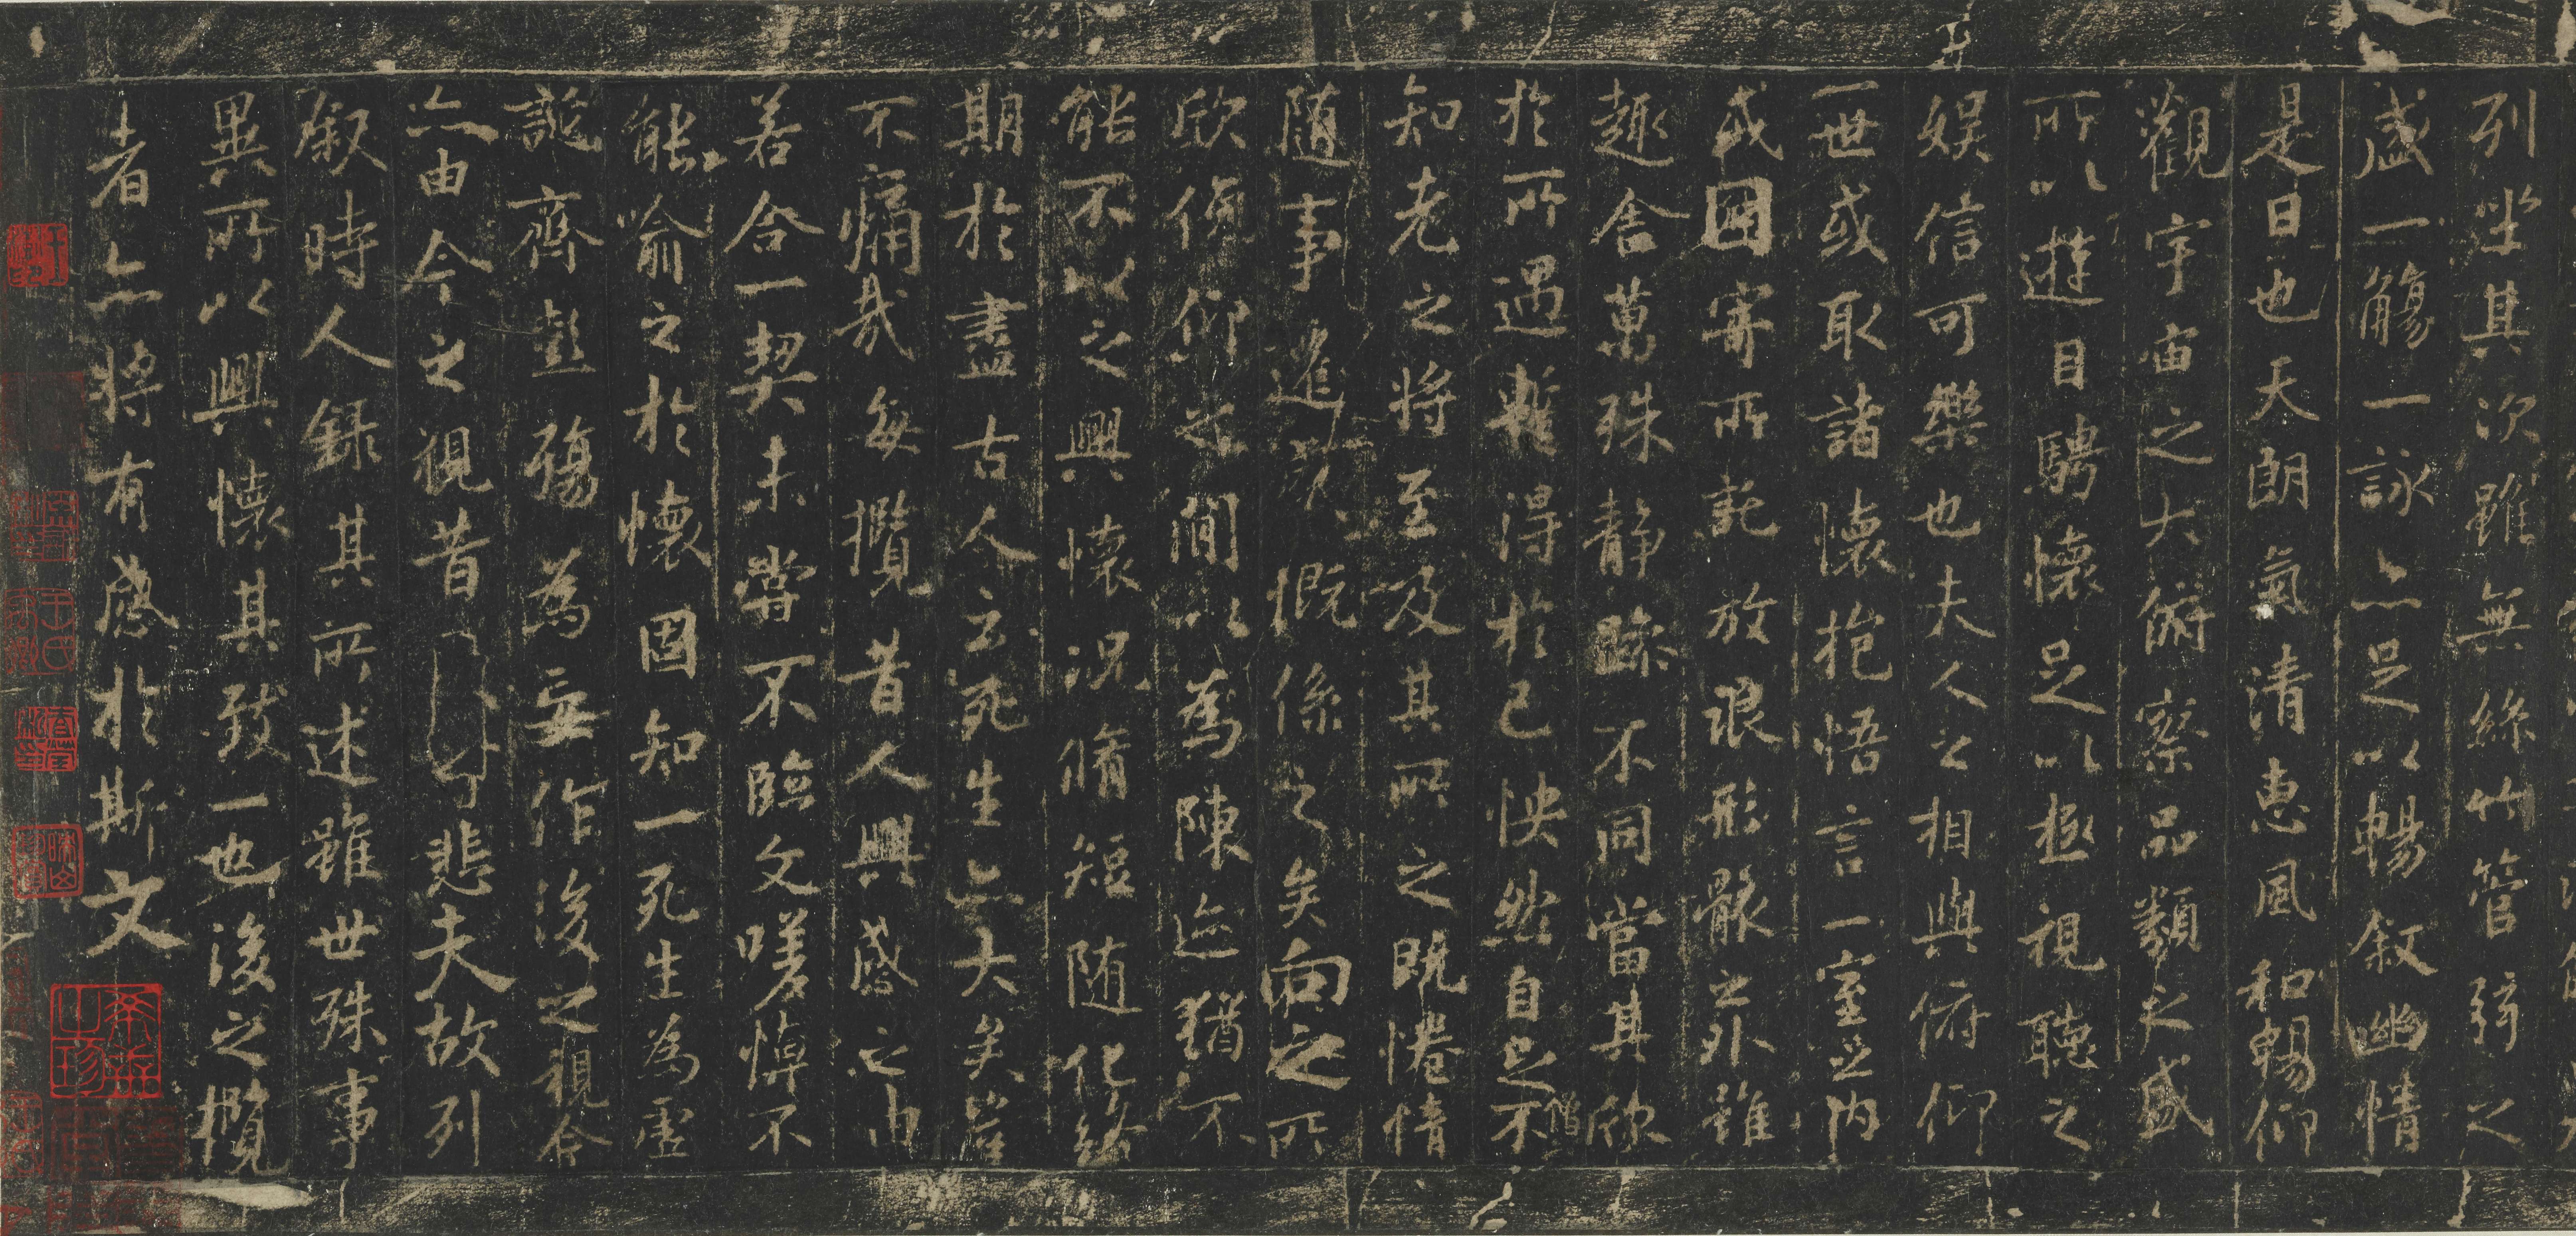 列坐其次雖無絲竹管弦之
盛一觴一詠亦足以暢敘幽情
是日也天朗氣清惠風和暢仰
觀宇宙之大俯察品類之盛
所以遊目騁懷足以極視聽之
娛信可樂也夫人之相與俯仰
一世或取諸懷抱悟言一室之內
或因寄所託放浪形骸之外雖
趣舍萬殊靜躁不同當其欣
於所遇暫得於己怏然自足不
僧
知老之將至及其所之既惓情
隨事遷感慨係之矣向之所
欣俛仰之間以為陳迹猶不
能不以之興懷況脩短隨化終
期於盡古人云死生亦大矣豈
不痛哉每攬昔人興感之由
若合一契未嘗不臨文嗟悼不
能喻之於懷固知一死生為虛
誕齊彭殤為妄作後之視今
亦由今之視昔悲夫故列
敘時人錄其所述雖世殊事
異所以興懷其致一也後之攬
者亦將有感於斯文